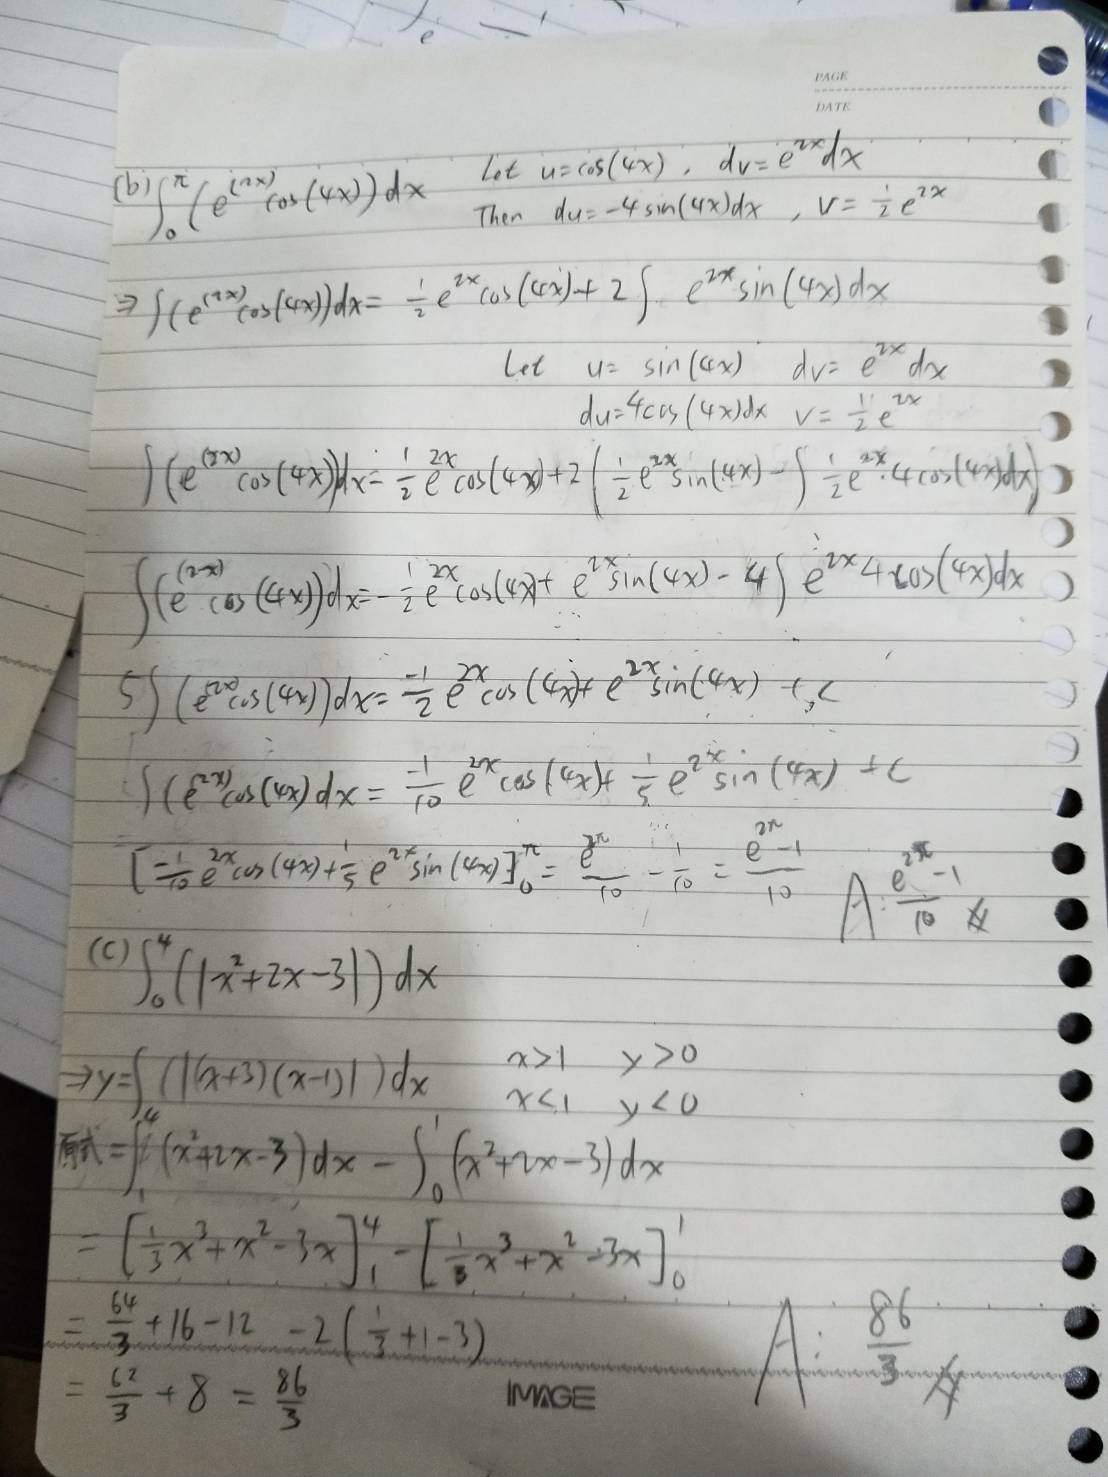 PAGE
DATE
(b) ∫₀^π (e^(2x) cos(4x)) dx Let u=cos(4x), dv=e^2x dx
Then du=-4sin(4x)dx, v=1/2 e^2x
⇒ ∫(e^(2x) cos(4x))dx = 1/2 e^2x cos(4x)+2∫ e^2x sin(4x)dx
Let u= sin(4x) dv= e^2x dx
du=4cos(4x)dx v= 1/2 e^2x
∫(e^(2x) cos(4x))dx= 1/2 e^2x cos(4x)+2(1/2 e^2x sin(4x) - ∫ 1/2 e^2x·4cos(4x)dx)
∫(e^(2x) cos(4x))dx=-1/2 e^2x cos(4x)+ e^2x sin(4x) - 4∫ e^2x 4cos(4x)dx
5∫(e^(2x) cos(4x))dx= -1/2 e^2x cos(4x)+ e^2x sin(4x) +C
∫(e^(2x) cos(4x) dx = -1/10 e^2x cos(4x)+ 1/5 e^2x sin(4x) +C
[-1/10 e^2x cos(4x)+1/5 e^2x sin(4x)]₀^π = e^2π/10 - 1/10 = e^2π-1/10 A: e^2π-1/10 #
(c) ∫₀^4 (|x²+2x-3|) dx
⇒y=∫(|(x+3)(x-1)|)dx x>1 y>0
x<1 y<0
原式=∫₁^4 (x²+2x-3)dx - ∫₀^1 (x²+2x-3)dx
= [1/3 x³+x²-3x]₁^4 - [1/3 x³+x²-3x]₀^1
= 64/3 +16-12 -2(1/3+1-3)
= 62/3 + 8 = 86/3 A: 86/3 #
IMAGE